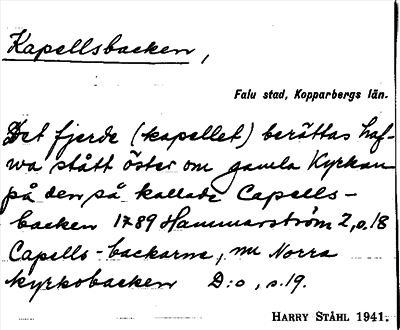 Kapellsbacken,
Falu stad, Kopparbergs län.
Det fjerde (kapellet) berättas haf-
wa stått öster om gamla Kyrkan
på den så kallade Capells-
backen 1789 Hammarström 2, s.18
Capells-backarne, nu Norra
kyrkobacken D:o, s.19.
HARRY STÅHL 1941.